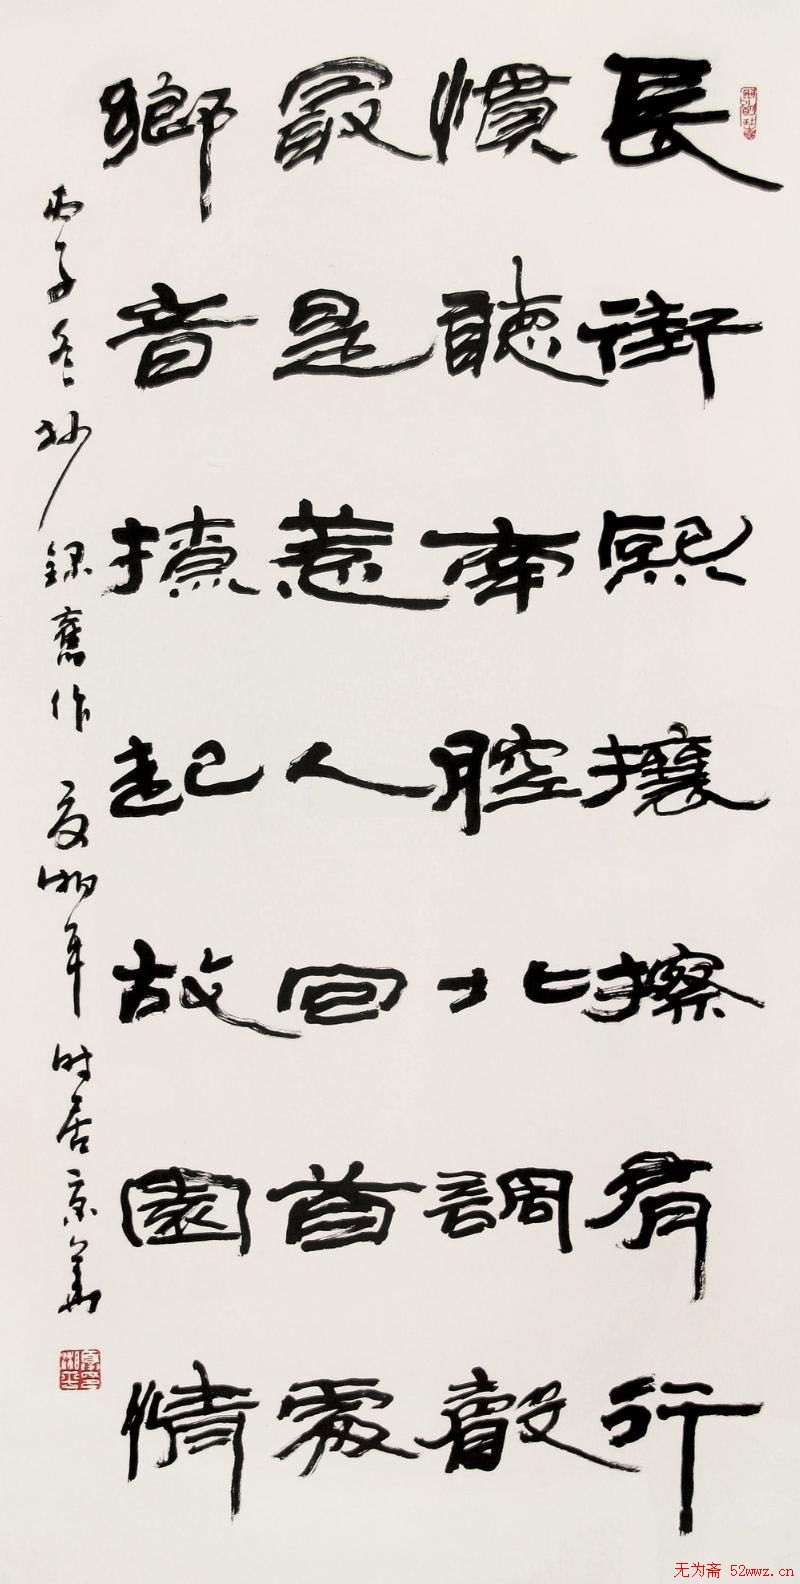 長街熙攘擦肩行
慣聽南腔北調聲
最是惹人回首處
鄉音撩起故園情
丙子冬杪錄舊作 夏湘平時居京華
无为斋 52wwz.cn